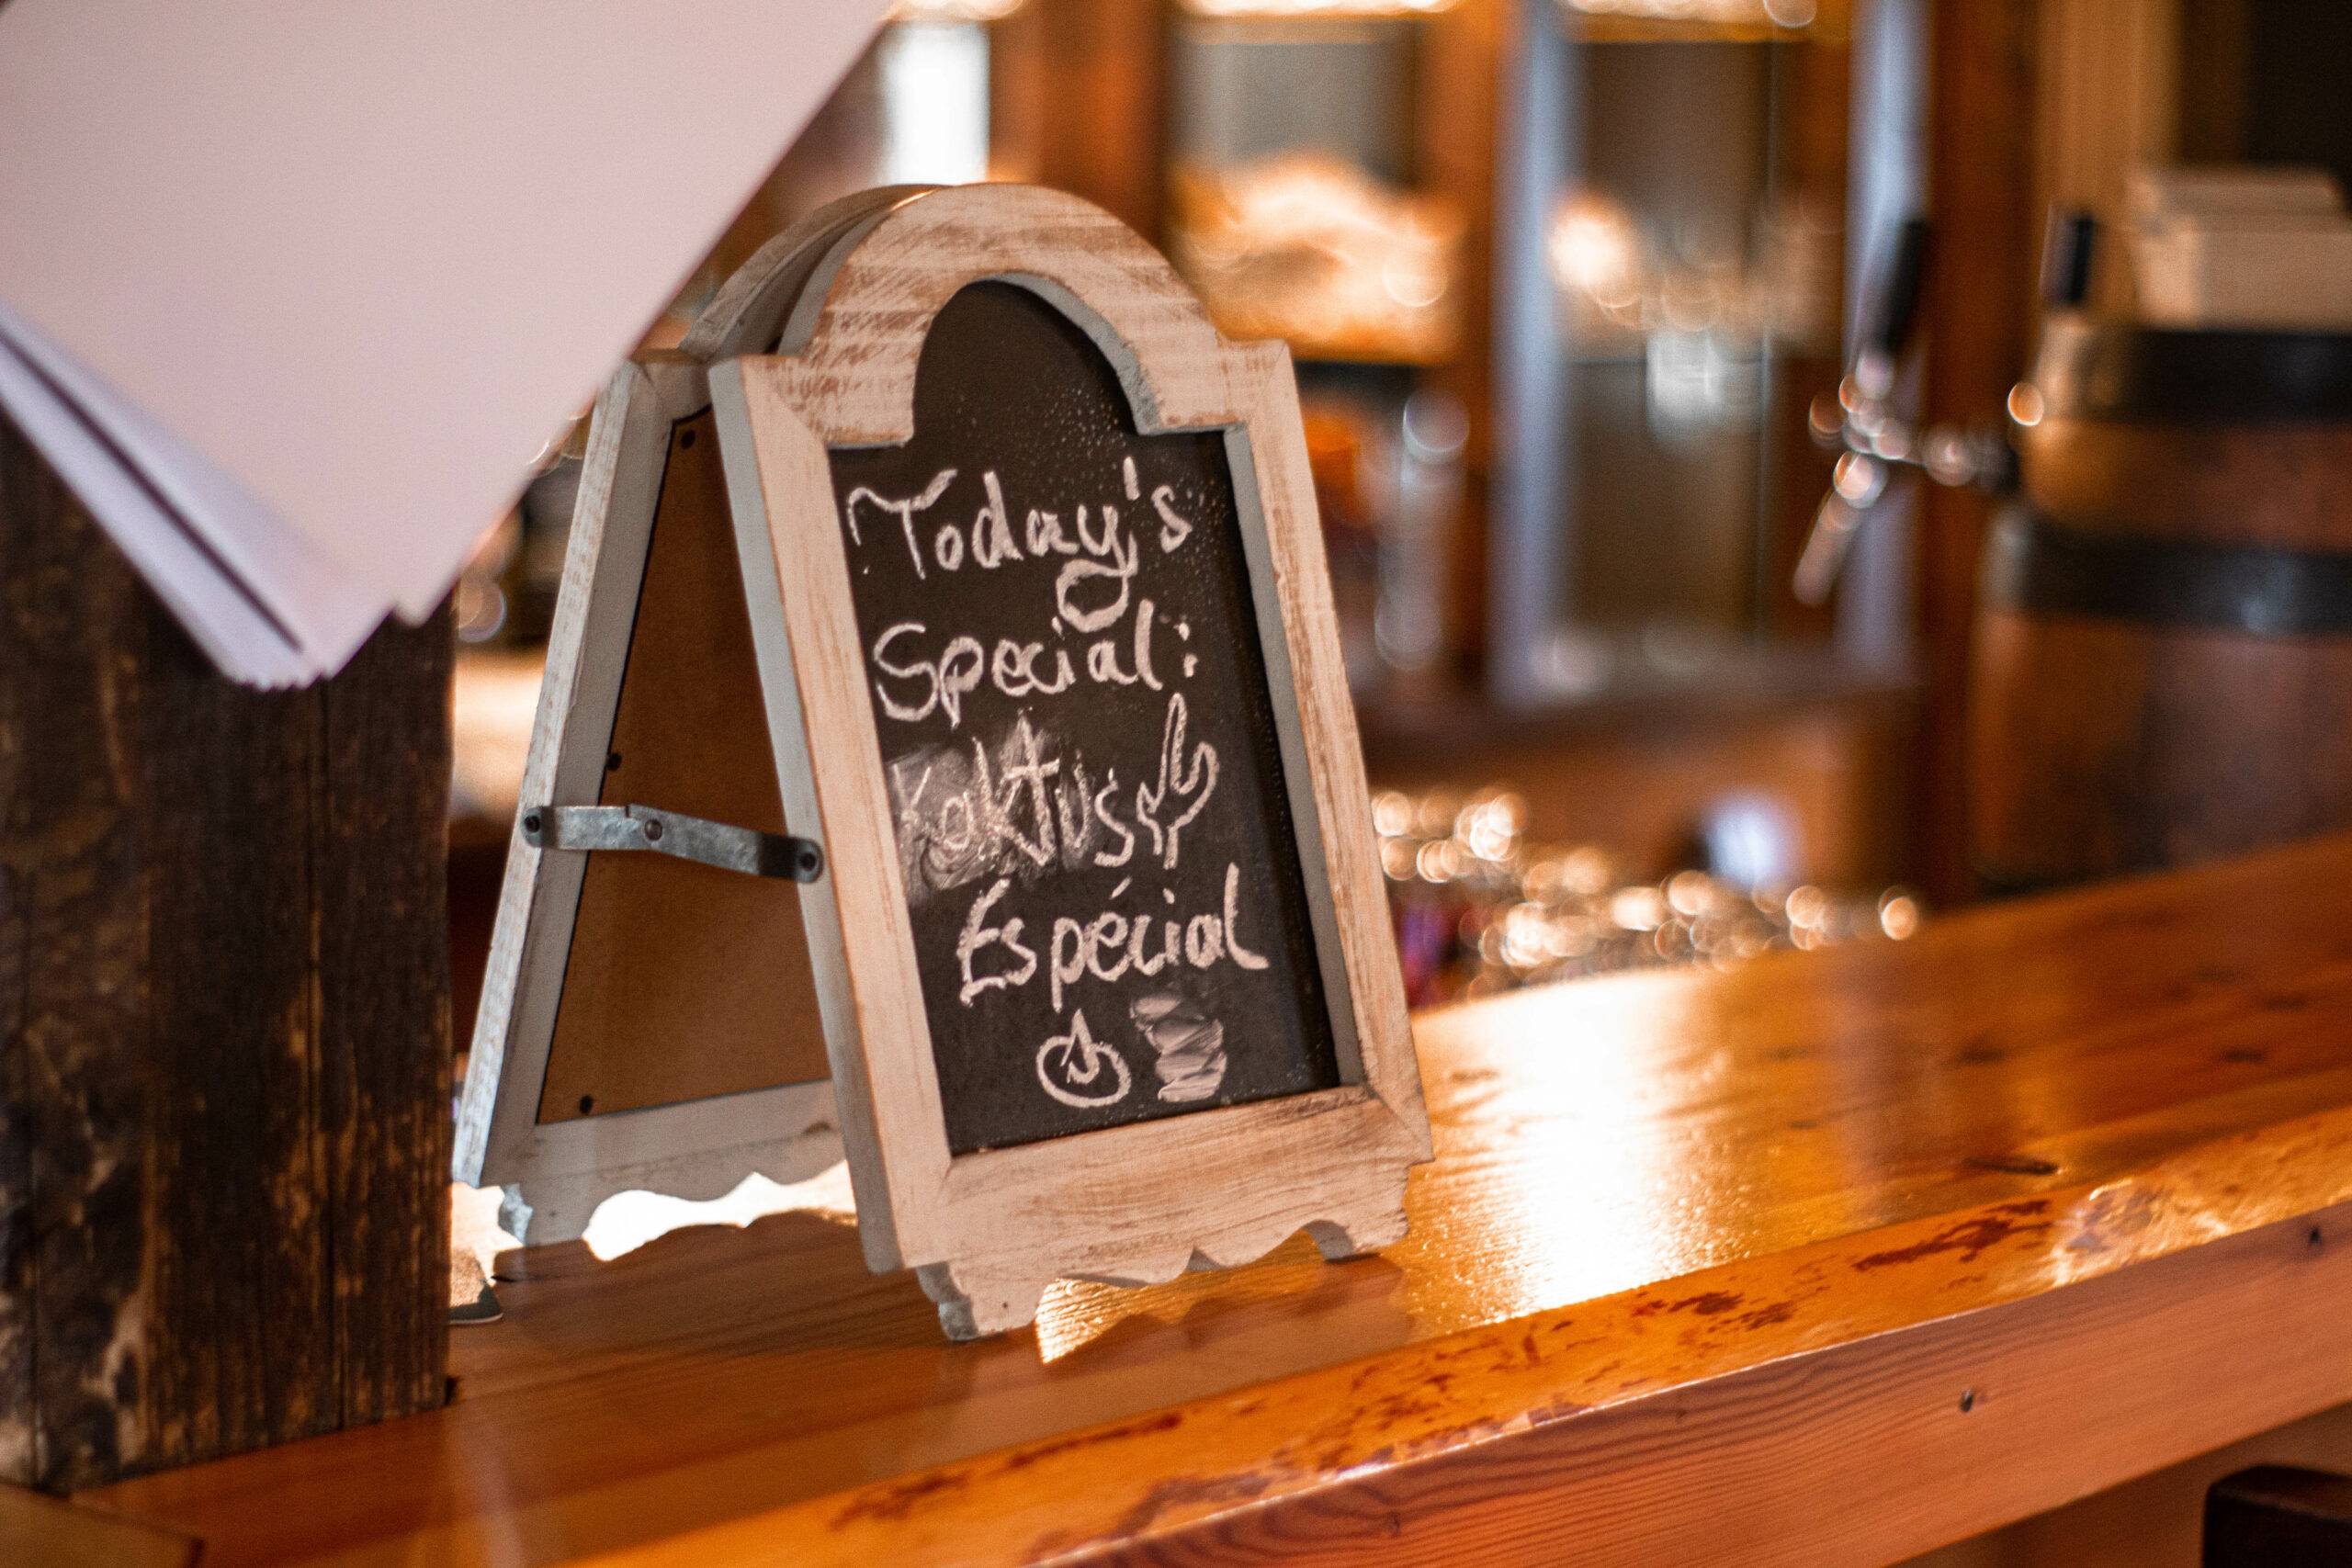 Today's
Special:
Kaktus
Espécial